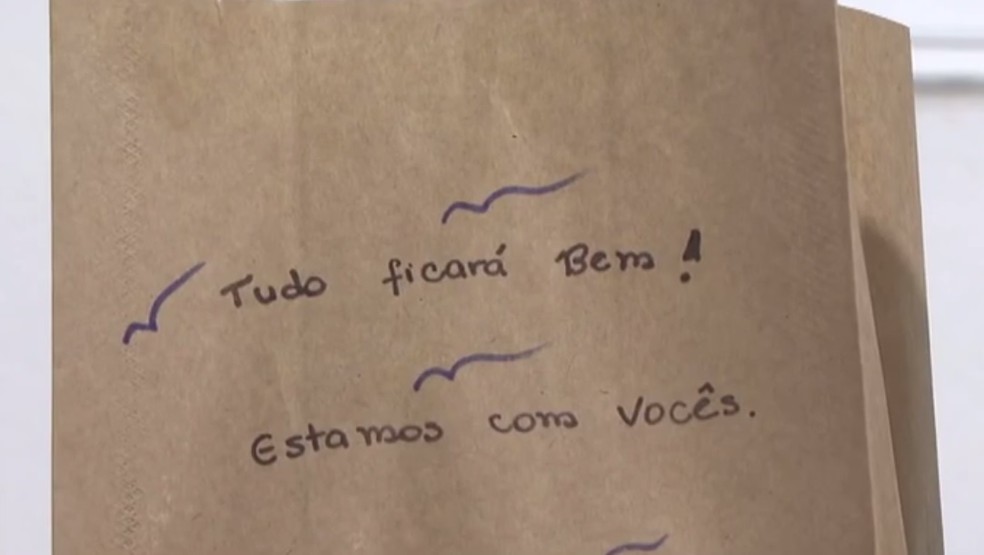 Tudo ficará Bem!
Estamos com vocês.